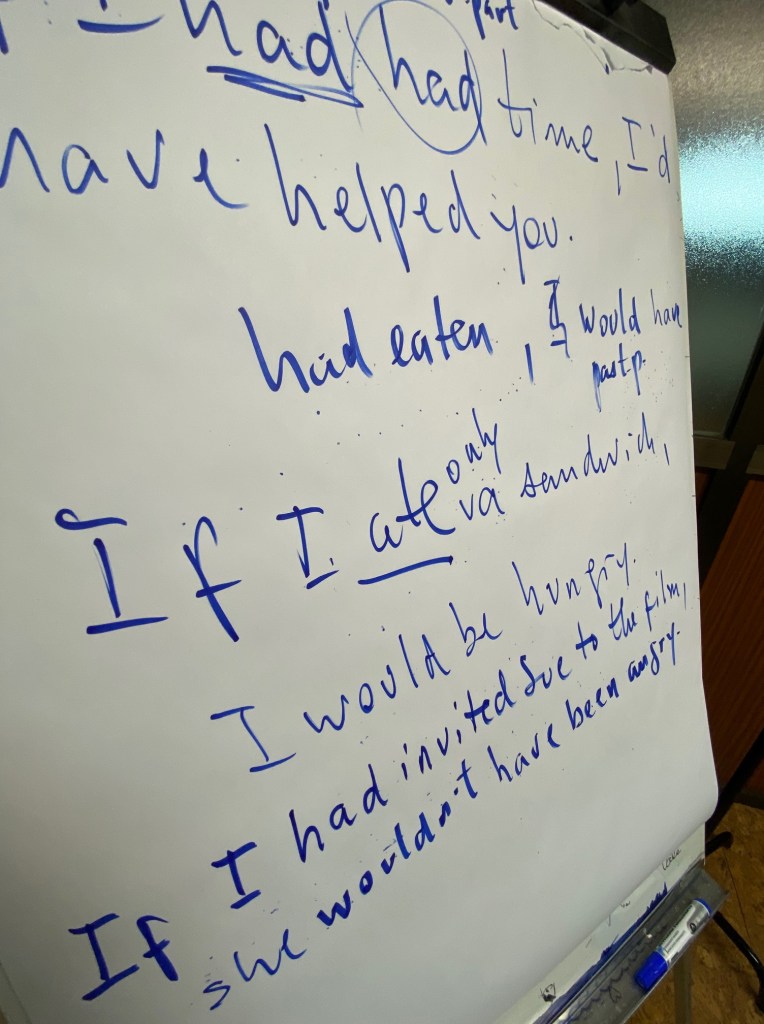 part
I had had time, I'd
have helped you.
had eaten, I would have
past p.
If I ate only a sandwich,
I would be hungry.
If I had invited Sue to the film,
she wouldn't have been angry.